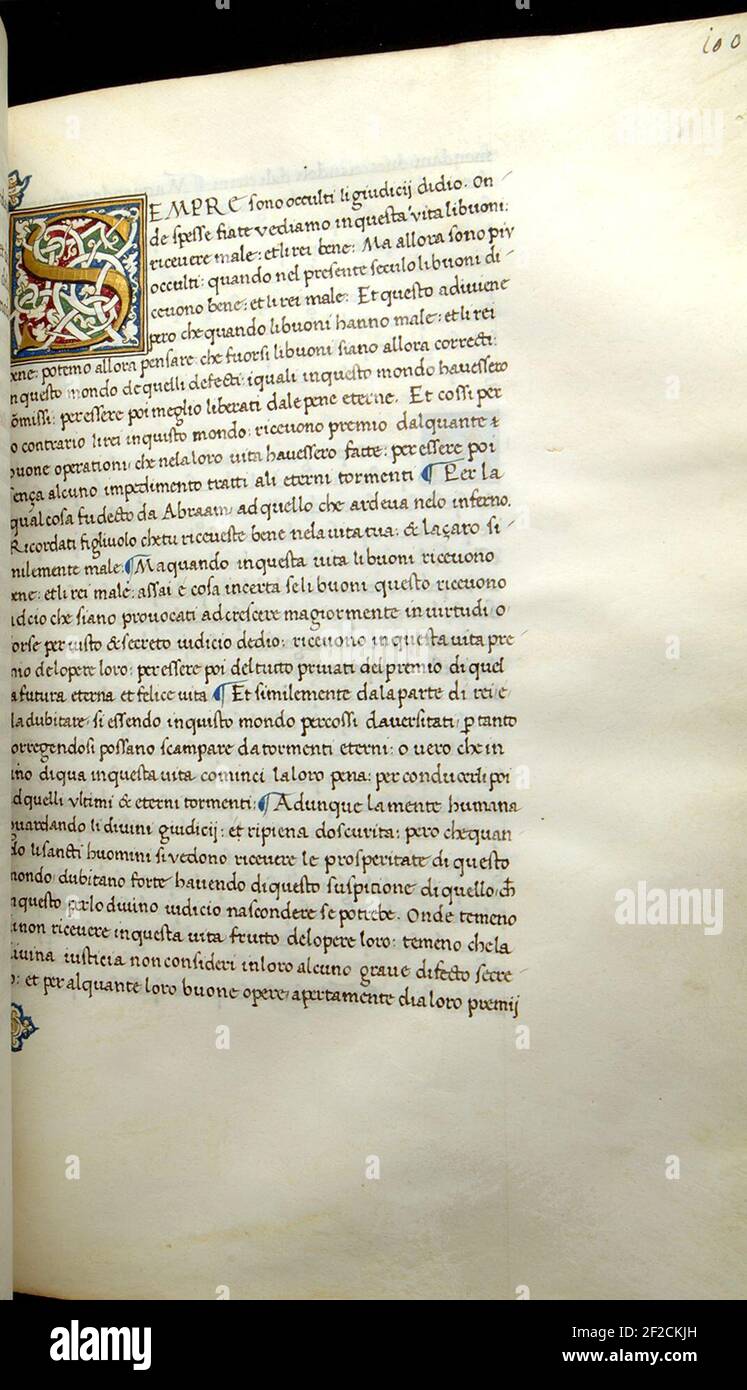 100
SEMPRE sono occulti li giudicij didio. On
de spesse fiate vediamo in questa vita li buoni:
ricevere male: et li rei bene: Ma allora sono piv
occulti: quando nel presente seculo li buoni di
cevono bene: et li rei male: Et questo adiviene
pero che quando li buoni hanno male: et li rei
ene: potemo allora pensare che fuorsi li buoni siano allora correcti:
n questo mondo de quelli defecti: i quali in questo mondo havessero
ōmissi: per essere poi meglio liberati dale pene eterne. Et cossi per
o contrario li rei in quisto mondo: ricevono premio dalquante &
buone operationi che nela loro vita havessero fatte: per essere poi
ença alcuno impedimento tratti ali eterni tormenti ¶ Per la
qual cosa fu decto da Abraam ad quello che ardeva nelo inferno.
Ricordati figliuolo che tu riceveste bene nela vita tua: & laçaro si
milemente male: ¶ Ma quando in questa vita li buoni ricevono
ene: et li rei male: assai e cosa incerta se li buoni questo ricevono
dcio che siano provocati ad crescere magiormente in virtudi o
orse per iusto & secreto iudicio dedio: ricevono in questa vita pre
mio del opere loro: per essere poi del tutto privati del premio di quel
a futura eterna et felice vita ¶ Et similemente dala parte di rei e
da dubitare: si essendo in quisto mondo percossi daversitati: ꝑ tanto
orregendosi possano scampare da tormenti eterni: o vero che in
ino di qua in questa vita cominci la loro pena: per conducerli poi
d quelli vltimi & eterni tormenti: ¶ Adunque la mente humana
guardando li divini giudicij: et ripiena doscurita: pero che quan
do li sancti huomini si vedono ricevere le prosperitate di questo
mondo: dubitano forte havendo di questo suspitione di quello ch̄
n questo per lo divino iudicio nascondere se potrebe. Onde temeno
di non ricevere in questa vita frutto del opere loro: temeno che la
divina iusticia non consideri in loro alcuno grave difecto secre
o: et per alquante loro buone opere apertamente dia loro premij
alamy
alamy
Image ID: 2F2CKJH
www.alamy.com